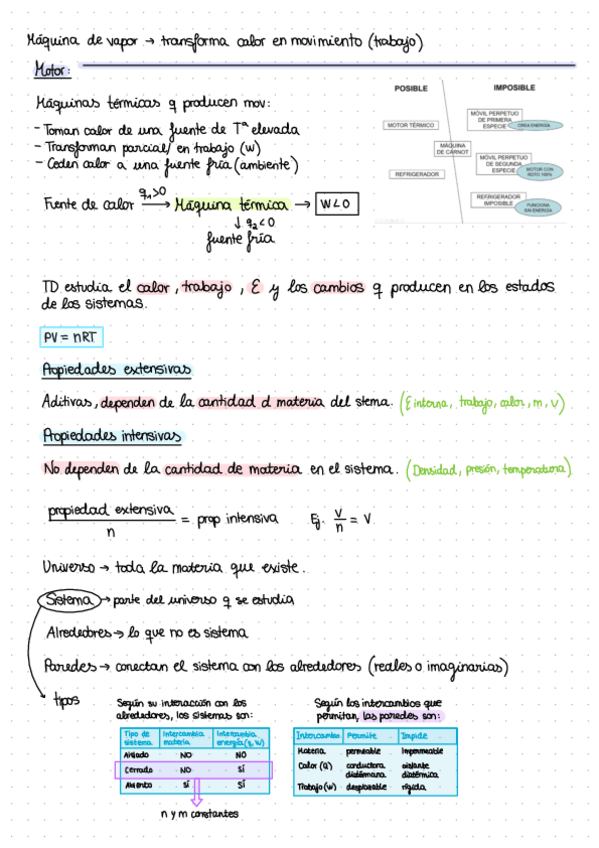 Máquina de vapor → transforma calor en movimiento (trabajo)
Motor:
Máquinas térmicas q producen mov:
- Toman calor de una fuente de Tª elevada
- Transforman parcial/ en trabajo (w)
- Ceden calor a una fuente fría (ambiente)
Fuente de calor q₁>0 → Máquina térmica → W<0
↓ q₂<0
fuente fría
POSIBLE IMPOSIBLE
MOTOR TÉRMICO
MÓVIL PERPETUO
DE PRIMERA
ESPECIE
CREA ENERGÍA
MÁQUINA
DE CARNOT
MÓVIL PERPETUO
DE SEGUNDA
ESPECIE
MOTOR CON
RDTO 100%
REFRIGERADOR
REFRIGERADOR
IMPOSIBLE
FUNCIONA
SIN ENERGÍA
TD estudia el calor, trabajo, E y los cambios q producen en los estados
de los sistemas.
PV = nRT
Propiedades extensivas
Aditivas, dependen de la cantidad d materia del stema. (E interna, trabajo, calor, m, v)
Propiedades intensivas
No dependen de la cantidad de materia en el sistema. (Densidad, presión, temperatura)
propiedad extensiva / n = prop intensiva Ej. V/n = V
Universo → toda la materia que existe.
Sistema → parte del universo q se estudia
Alrededores → lo que no es sistema
Paredes → conectan el sistema con los alrededores (reales o imaginarias)
tipos
Según su interacción con los
alrededores, los sistemas son:
Tipo de sistema Intercambia materia Intercambia energía (q, W)
Aislado NO NO
Cerrado NO SÍ
Abierto SÍ SÍ
n y m constantes
Según los intercambios que
permitan, las paredes son:
Intercambio Permite Impide
Materia permeable Impermeable
Calor (Q) conductora diatérmana aislante
Trabajo (W) desplazable rígida